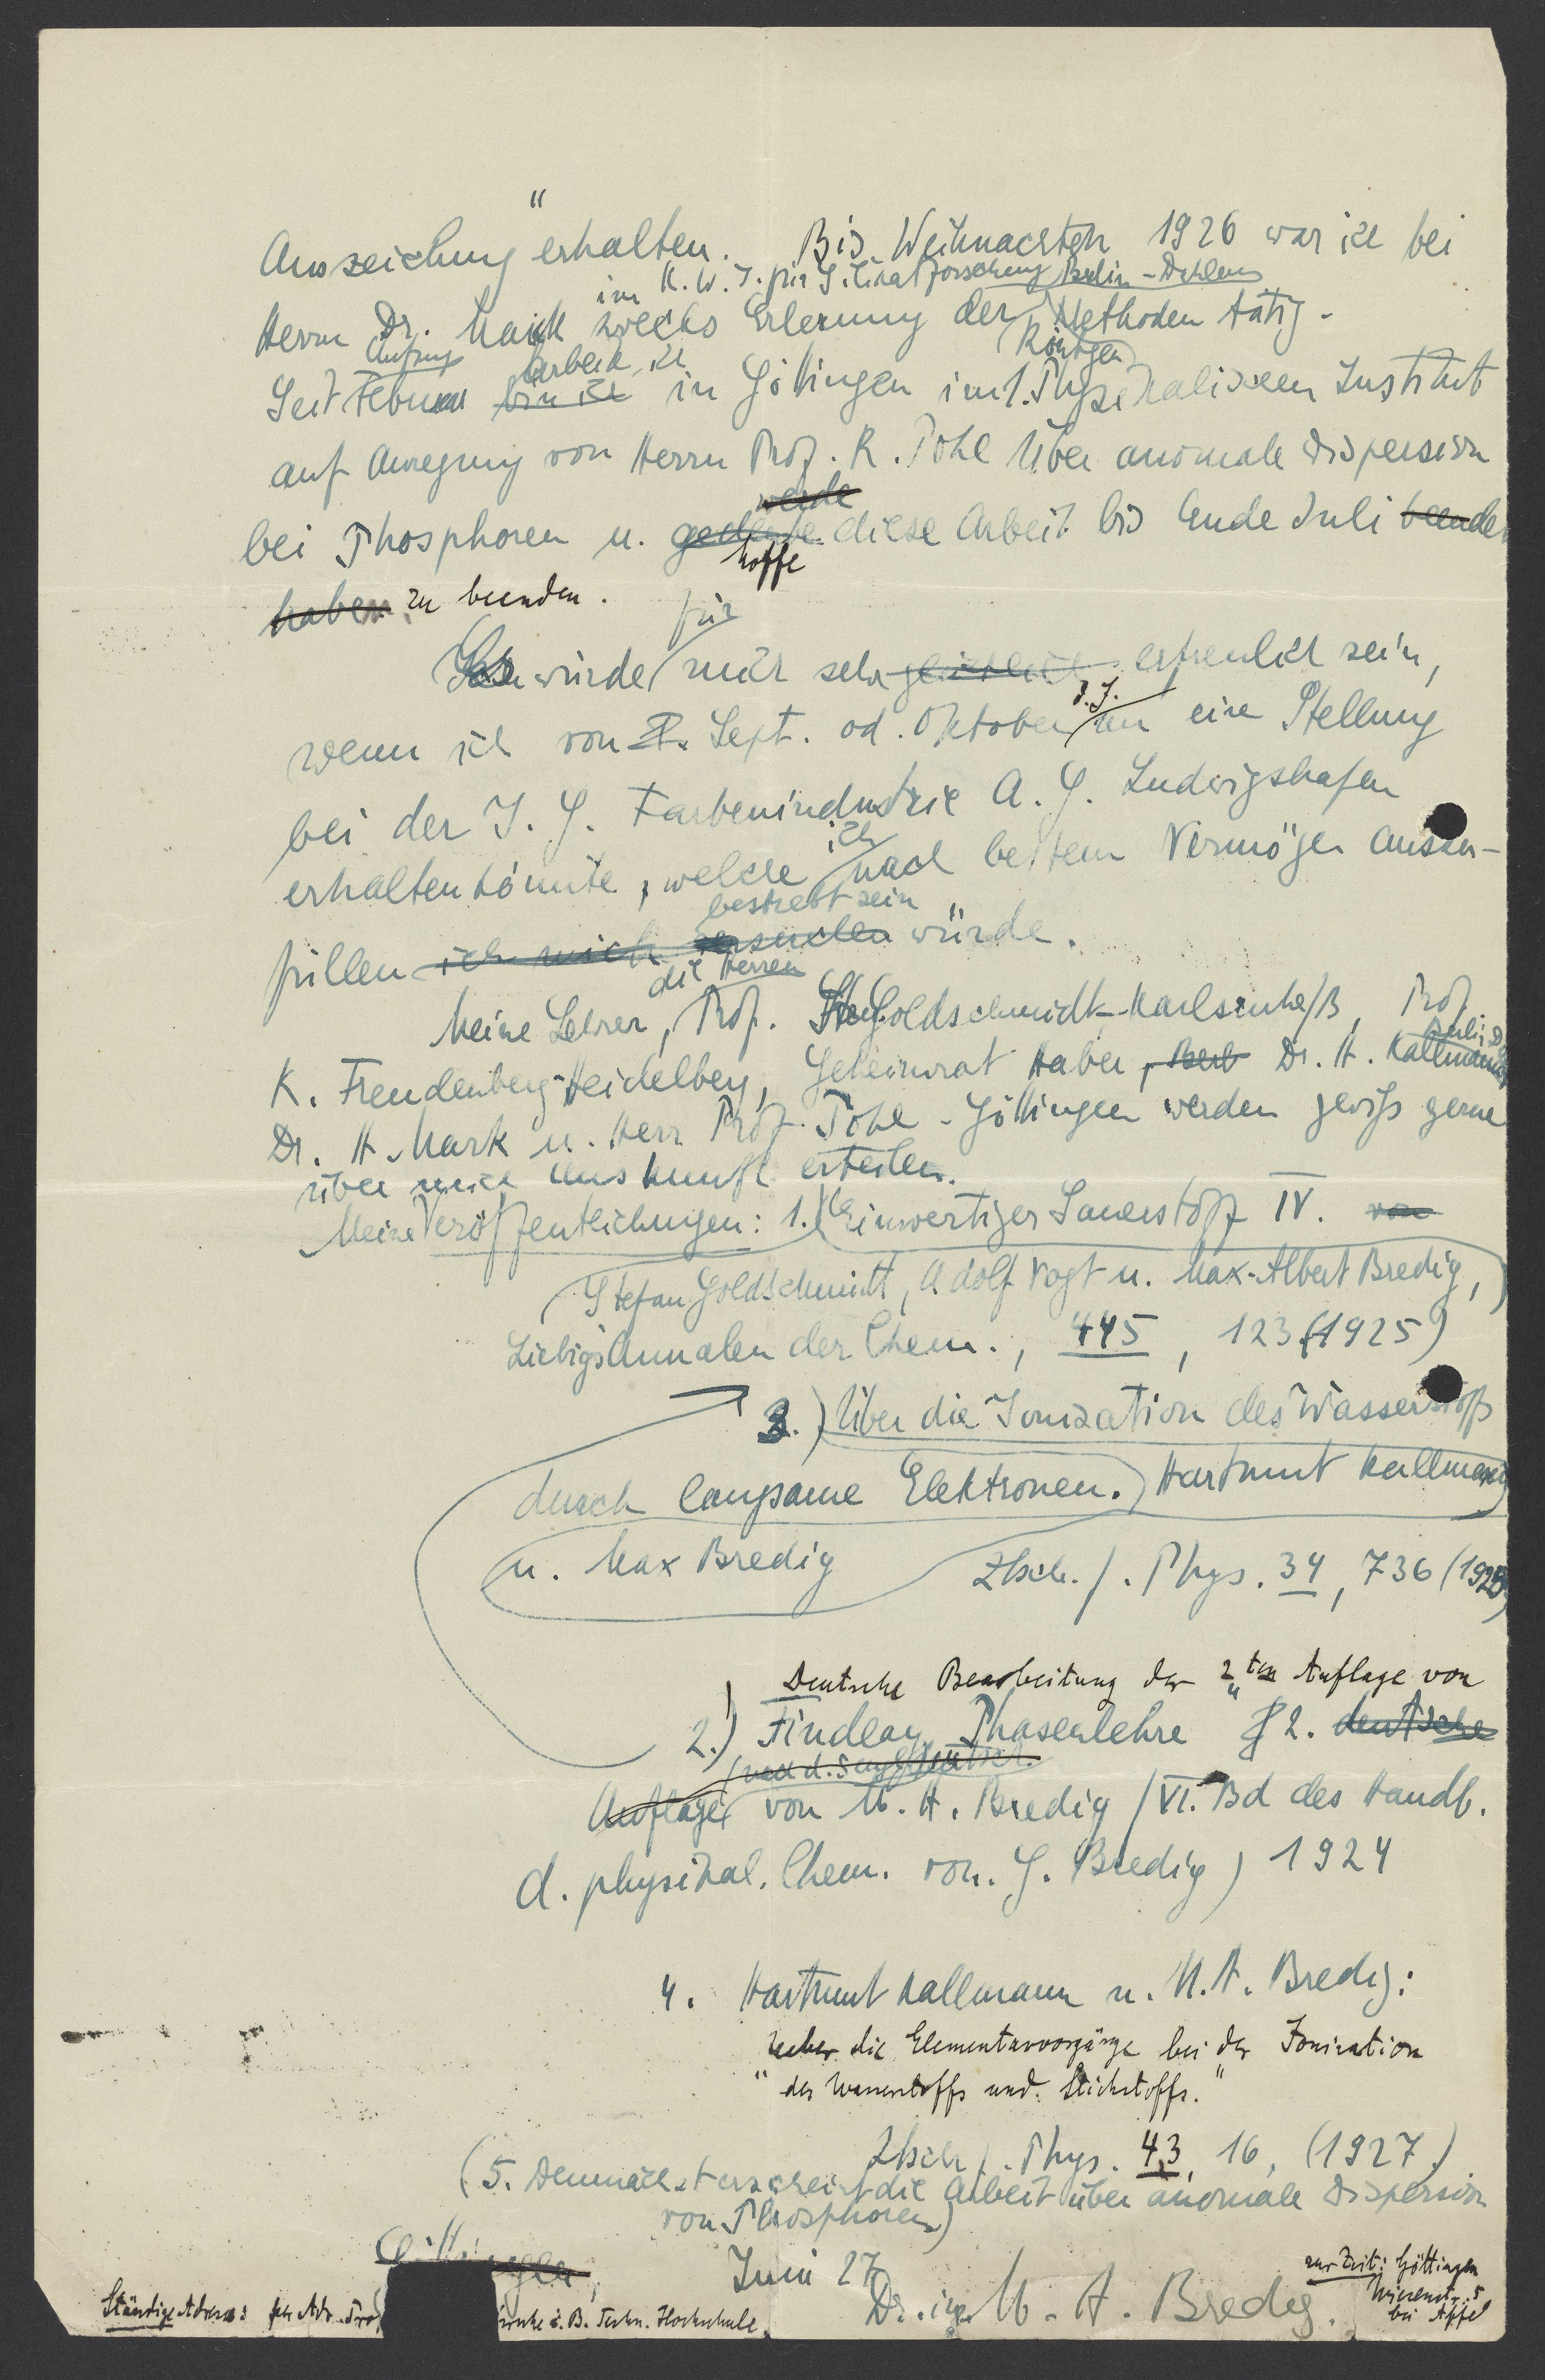 Auszeichnung" erhalten. Bis Weihnachten 1926 war ich bei
im K.W.I. für Silikatforschung Berlin-Dahlem
Herrn Dr. Mark zwecks Erlernung der Methoden tätig.
Röntgen
Anfang arbeite ich
Seit Februar bin ich in Göttingen im 1. Physikalischen Institut
auf Anregung von Herrn Prof. R. Pohl über anomale Dispersion
werde
bei Phosphoren u. gedenke diese Arbeit bis Ende Juli beendet
hoffe
haben zu beenden.
für
Es würde mich sehr erfreulich sein,
d. J.
wenn ich von Sept. od. Oktober an eine Stellung
bei der I. G. Farbenindustrie A. G. Ludwigshafen
ich
erhalten könnte, welche nach bestem Vermögen auszu-
bestrebt sein
füllen ich mich versuchen würde.
die Herren
Meine Lehrer, Prof. Goldschmidt-Karlsruhe/B, Prof.
K. Freudenberg-Heidelberg, Geheimrat Haber, Berl Dr. H. Kallmann
Dr. H. Mark u. Herr Prof. Pohl-Göttingen werden gewiss gerne
über mich Auskunft erteilen.
Meine Veröffentlichungen: 1. Einwertiger Sauerstoff IV. von
Stefan Goldschmidt, Adolf Vogt u. Max-Albert Bredig,
Liebigs Annalen der Chem., 445, 123 (1925)
3.) Über die Ionisation des Wasserstoffs
durch langsame Elektronen. Hartmut Kallmann
u. Max Bredig Ztsch. f. Phys. 34, 736 (1925)
Deutsche Bearbeitung der 2ten Auflage von
2.) Findlay Phasenlehre 2. deutsche
Auflage von M. A. Bredig (VI. Bd des Handb.
d. physikal. Chem. von G. Bredig) 1924
4. Hartmut Kallmann u. M. A. Bredig:
Ueber die Elementarvorgänge bei der Ionisation
"des Wasserstoffs und Stickstoffs."
Ztsch f. Phys. 43, 16, (1927)
(5. Demnächst erscheint die Arbeit über anomale Dispersion
von Phosphoren)
Göttingen, Juni 27
zur Zeit: Göttingen
bei Apfel
Dr. ing. M. A. Bredig.
Ständige Adresse: per Adr. Prof i. B. Techn. Hochschule.